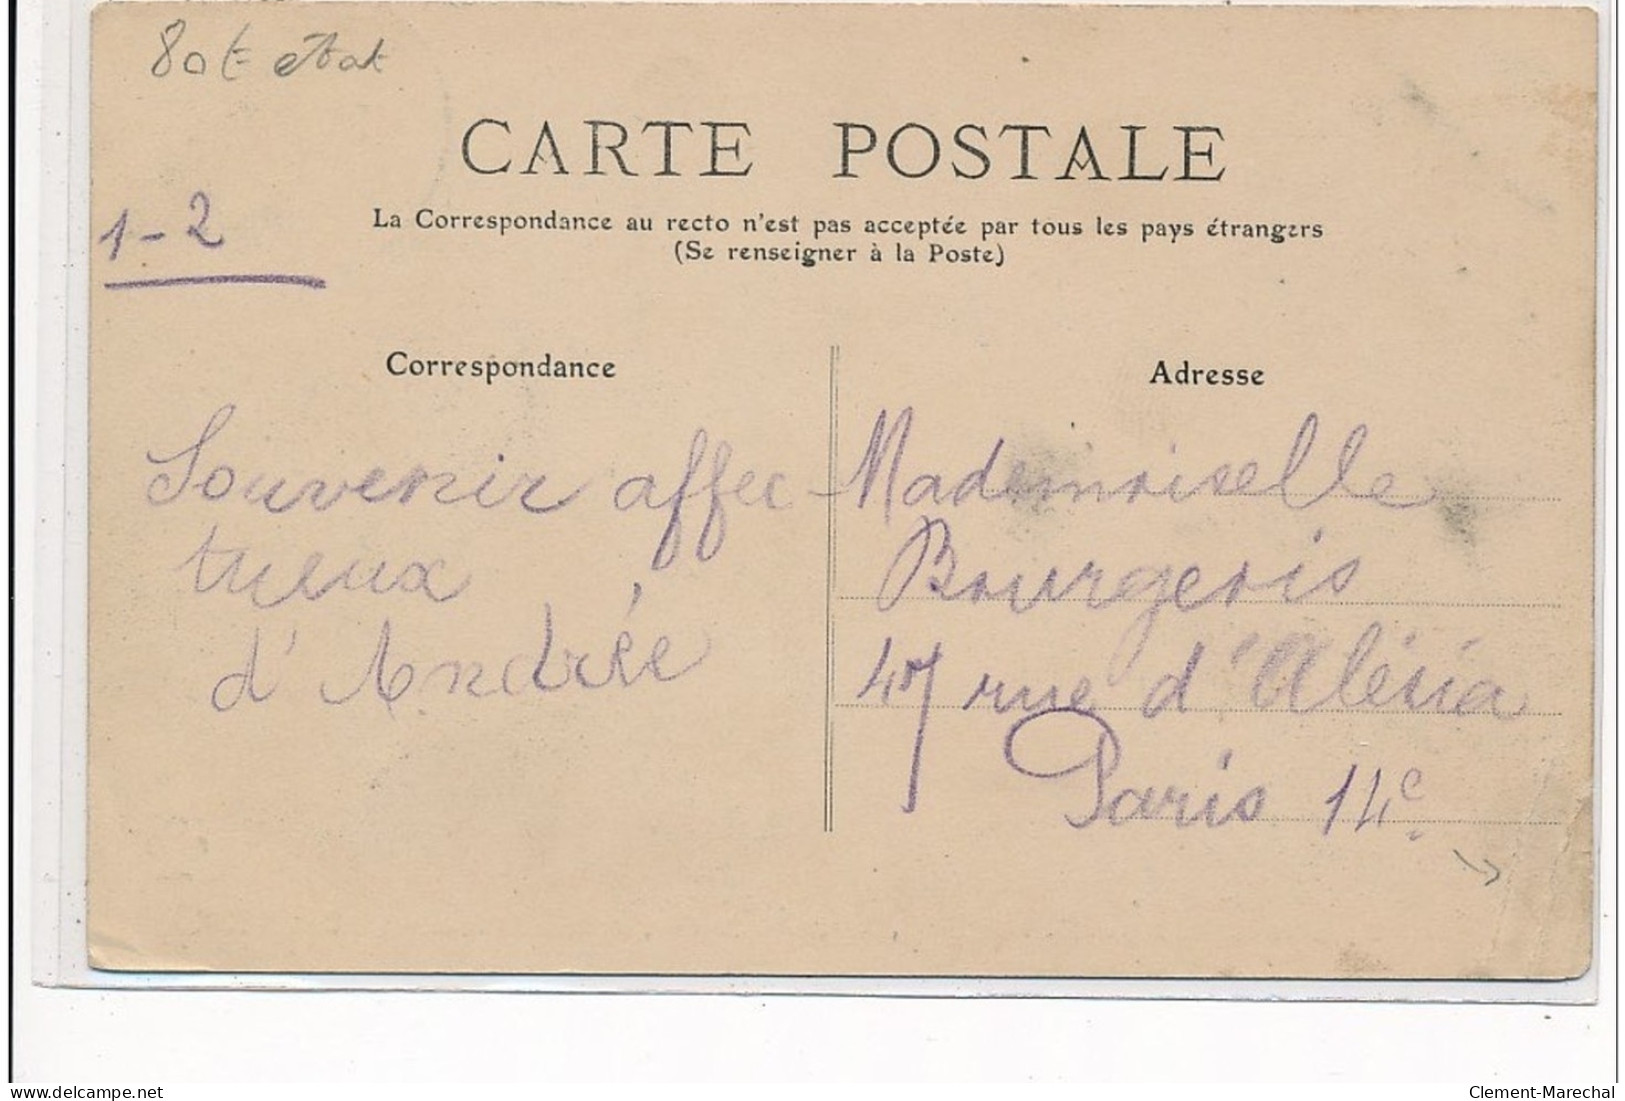 80 € état
CARTE POSTALE
1-2
La Correspondance au recto n'est pas acceptée par tous les pays étrangers
(Se renseigner à la Poste)
Correspondance
Souvenir affec
tueux
d'Andrée
Adresse
Mademoiselle
Bourgeois
47 rue d'Alésia
Paris 14e
www.delcampe.net
Clement-Marechal